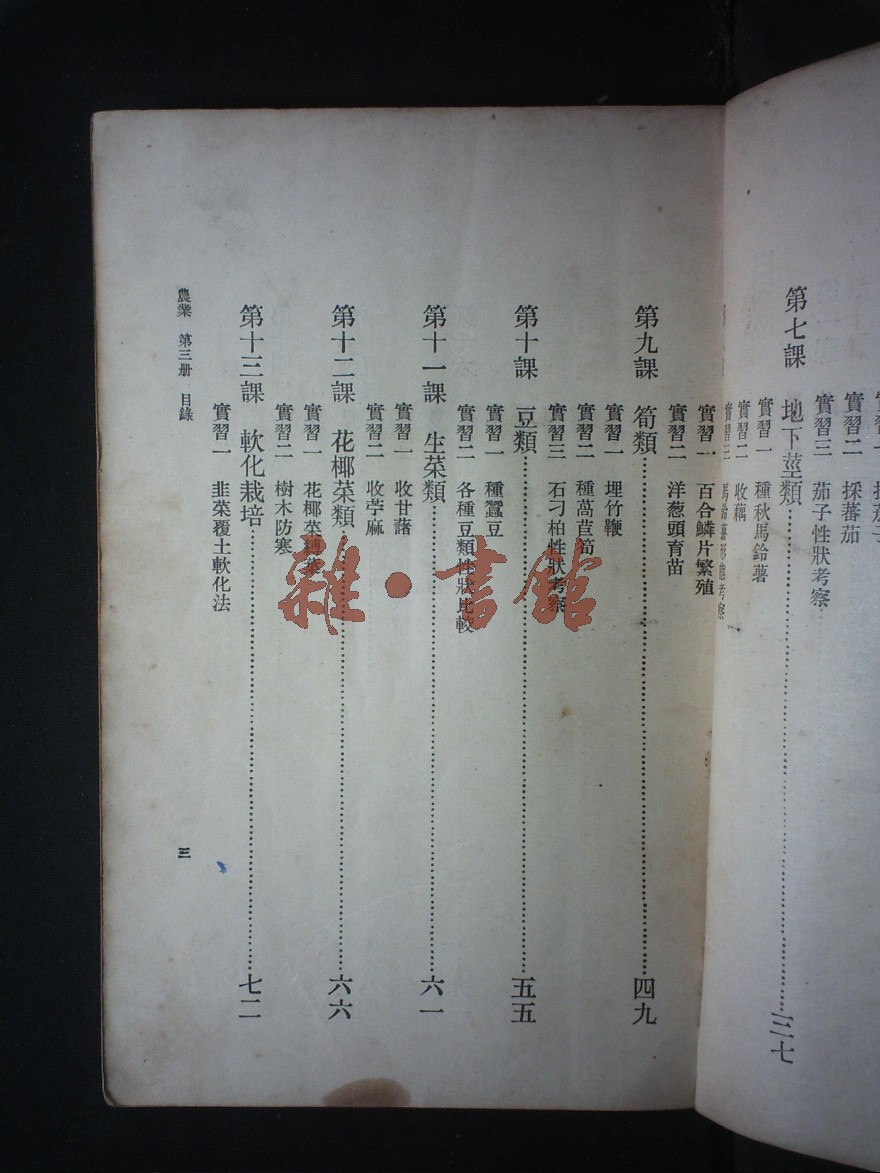 實習二 採蕃茄
實習三 茄子性狀考察
第七課 地下莖類 三七
實習一 種秋馬鈴薯
實習二 收藕
實習三 馬鈴薯形態考察
實習一 百合鱗片繁殖
實習二 洋葱頭育苗
第九課 筍類 四九
實習一 埋竹鞭
實習二 種萵苣筍
實習三 石刁柏性狀考察
第十課 豆類 五五
實習一 種蠶豆
實習二 各種豆類性狀比較
第十一課 生菜類 六一
實習一 收甘藷
實習二 收苧麻
第十二課 花椰菜類 六六
實習一 花椰菜縛葉
實習二 樹木防寒
第十三課 軟化栽培 七二
實習一 韭菜覆土軟化法
農業 第三册 目錄
三
雜·書館